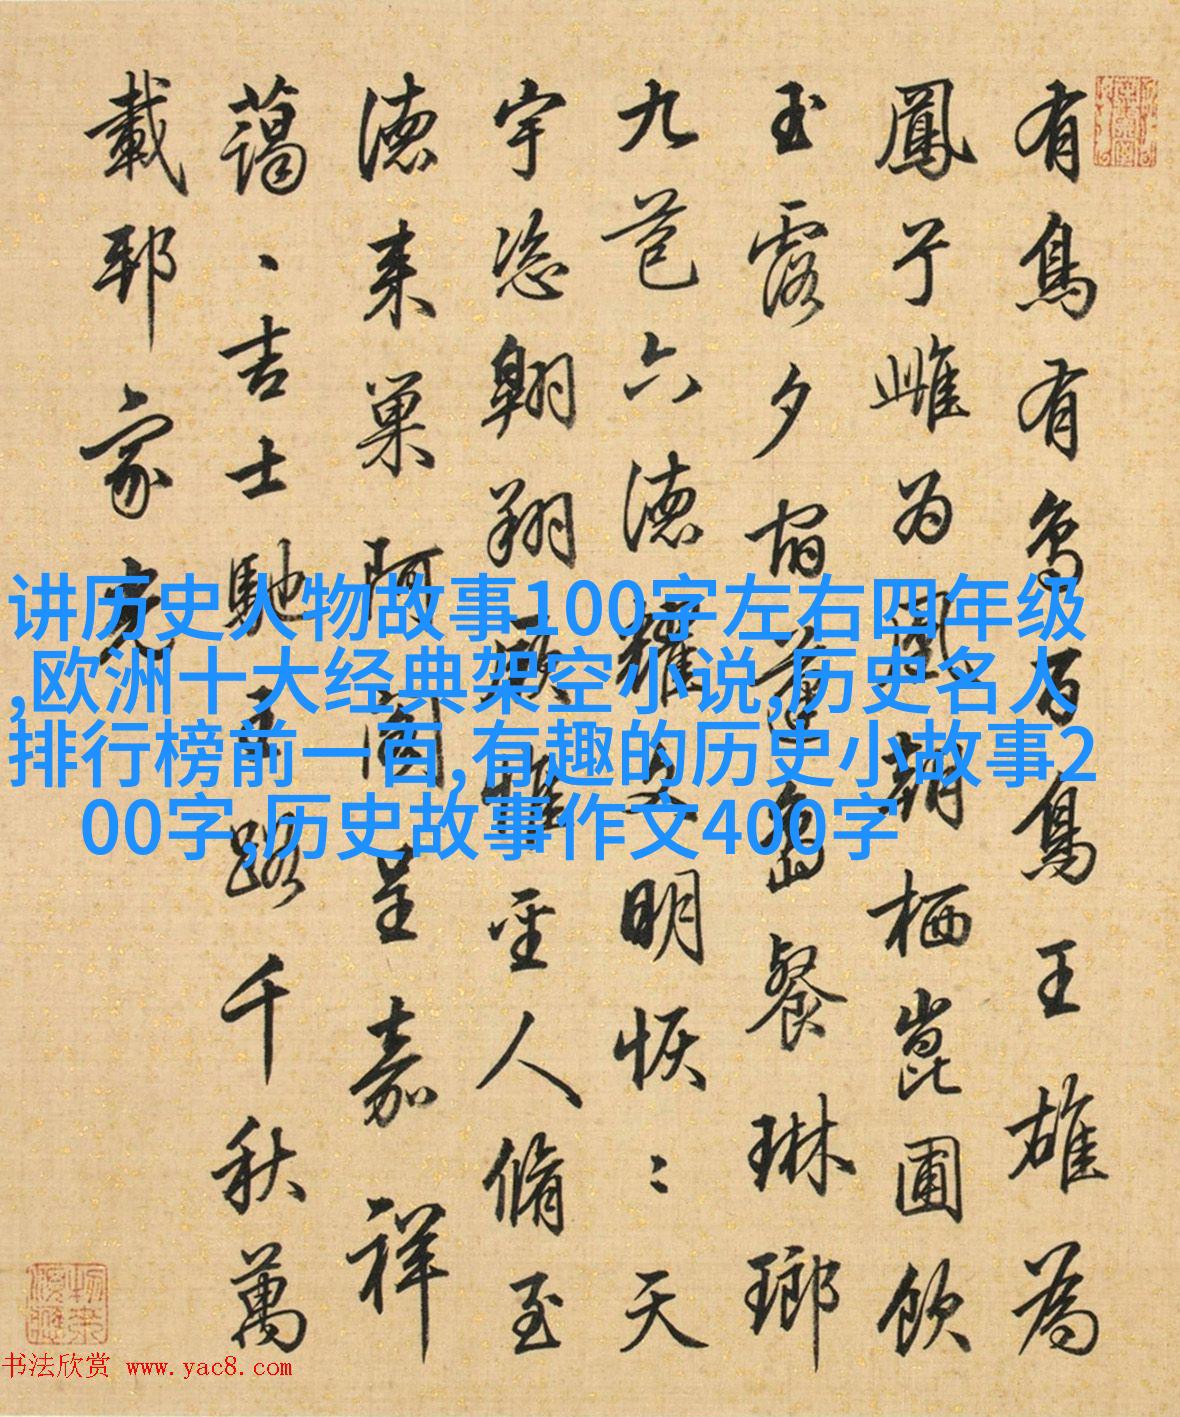 有鳥有鳥百鳥王雄為
鳳兮雌为凰朝栖崑圃飲
玉露夕宿蓬島餐琳瑯
九苞六德耀文明恢〻天
宇恣翱翔願惟聖人脩至
德来巢阿閣呈嘉祥
藹〻吉士馳王路千秋萬
載邦家光
讲历史人物故事100字左右四年级
,欧洲十大经典架空小说,历史名人
排行榜前一百,有趣的历史小故事2
00字,历史故事作文400字
书法欣赏 www.yac8.com